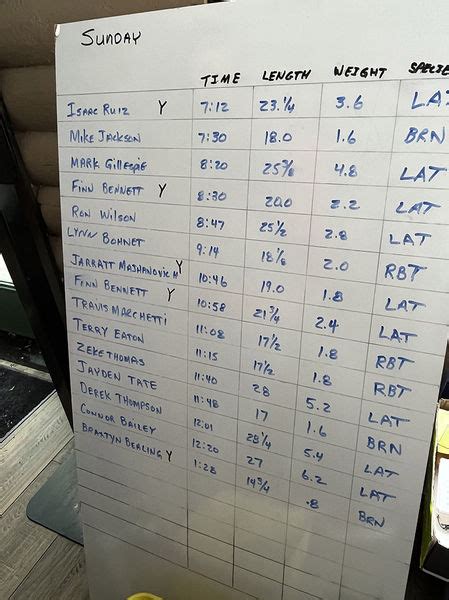 SUNDAY
TIME LENGTH WEIGHT SPECIE
ISAAC RUIZ Y 7:12 23.1/4 3.6 LAT
MIKE JACKSON 7:30 18.0 1.6 BRN
MARK GILLESPIE 8:20 25 3/8 4.8 LAT
FINN BENNETT Y 8:30 20.0 2.2 LAT
RON WILSON 8:47 25 1/2 2.8 LAT
LYNN BOHNET 9:14 18 1/8 2.0 RBT
JARRATT MAJHANOVICH Y 10:46 19.0 1.8 LAT
FINN BENNETT Y 10:58 21 3/4 2.4 LAT
TRAVIS MARCHETTI 11:08 17 1/2 1.8 RBT
TERRY EATON 11:15 17 1/2 1.8 RBT
ZEKE THOMAS 11:40 28 5.2 LAT
JAYDEN TATE 11:48 17 1.6 BRN
DEREK THOMPSON 12:01 28 1/4 5.4 LAT
CONNOR BAILEY 12:20 27 6.2 LAT
BRAXTYN BEALING Y 1:28 14 3/4 .8 BRN